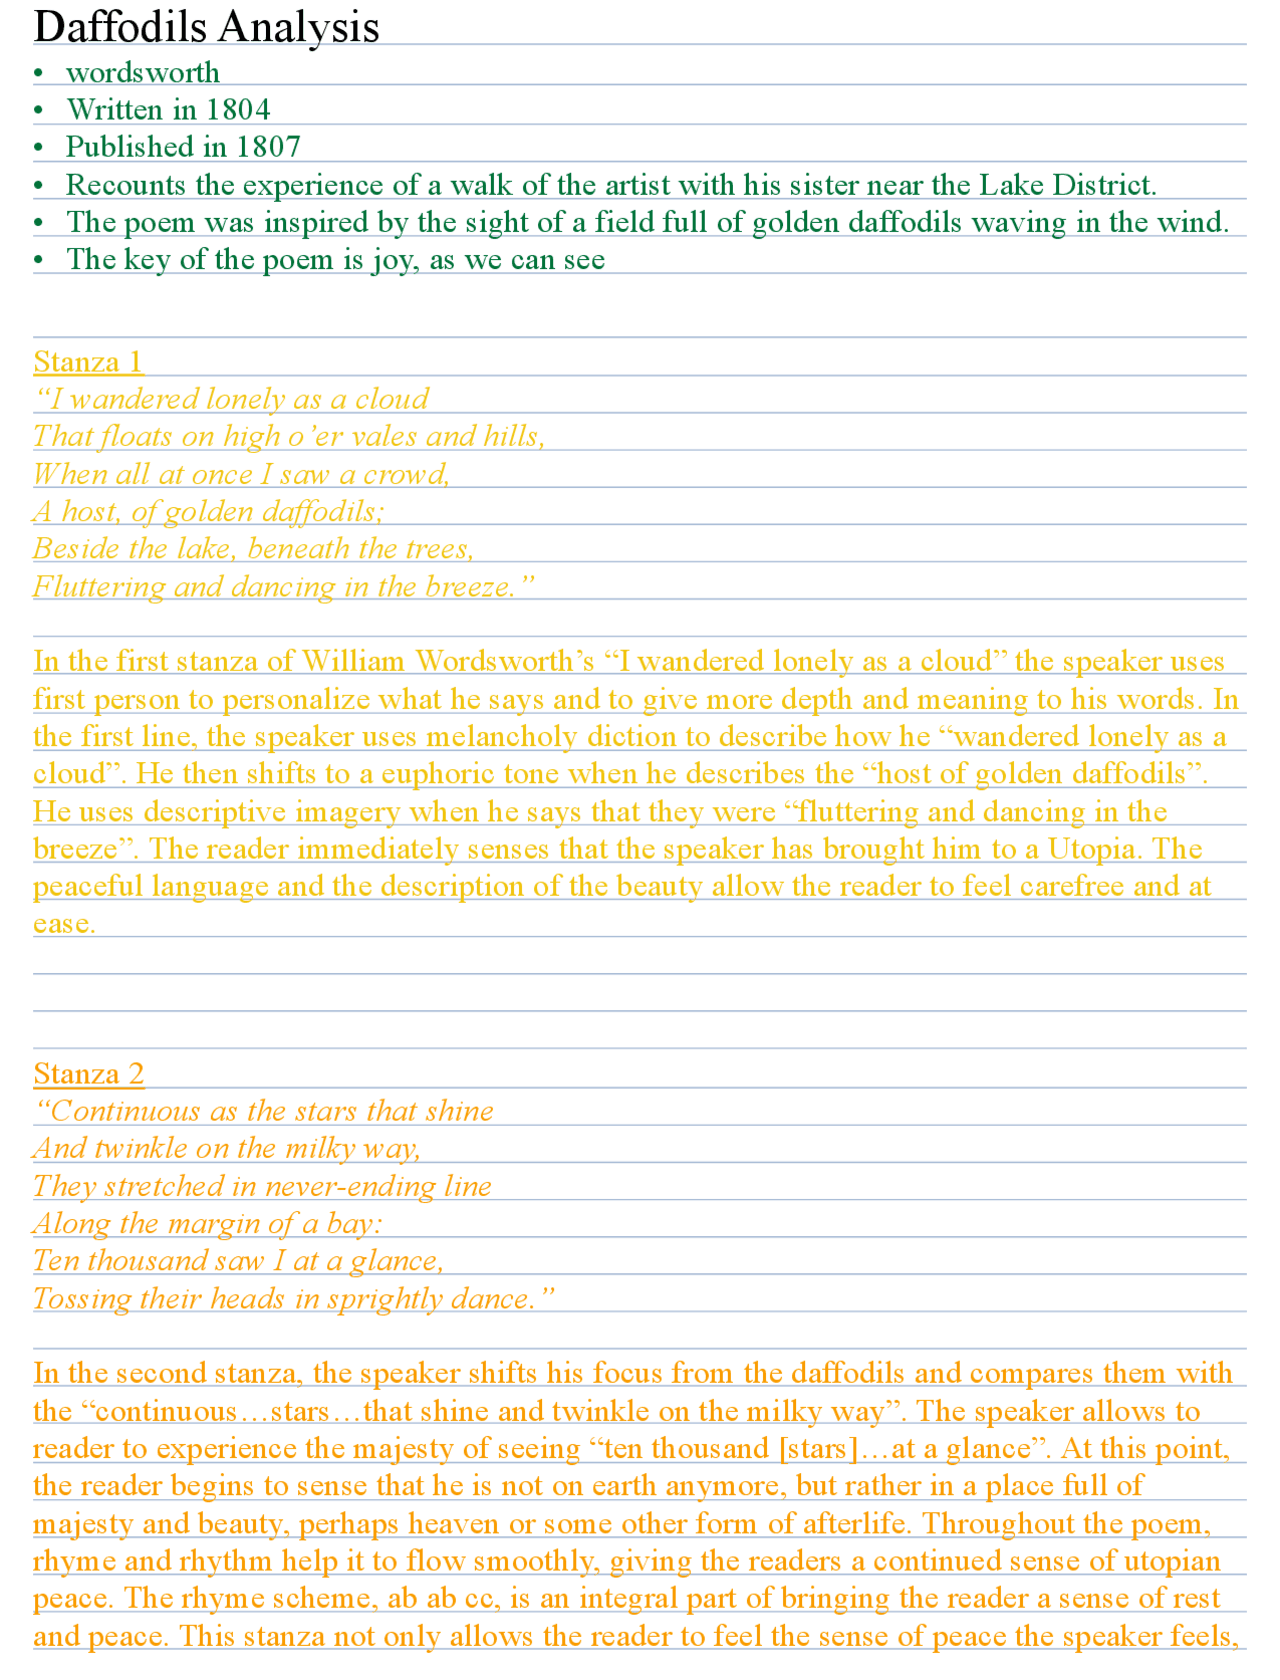 Daffodils Analysis
• wordsworth
• Written in 1804
• Published in 1807
• Recounts the experience of a walk of the artist with his sister near the Lake District.
• The poem was inspired by the sight of a field full of golden daffodils waving in the wind.
• The key of the poem is joy, as we can see
Stanza 1
“I wandered lonely as a cloud
That floats on high o’er vales and hills,
When all at once I saw a crowd,
A host, of golden daffodils;
Beside the lake, beneath the trees,
Fluttering and dancing in the breeze.”
In the first stanza of William Wordsworth’s “I wandered lonely as a cloud” the speaker uses
first person to personalize what he says and to give more depth and meaning to his words. In
the first line, the speaker uses melancholy diction to describe how he “wandered lonely as a
cloud”. He then shifts to a euphoric tone when he describes the “host of golden daffodils”.
He uses descriptive imagery when he says that they were “fluttering and dancing in the
breeze”. The reader immediately senses that the speaker has brought him to a Utopia. The
peaceful language and the description of the beauty allow the reader to feel carefree and at
ease.
Stanza 2
“Continuous as the stars that shine
And twinkle on the milky way,
They stretched in never-ending line
Along the margin of a bay:
Ten thousand saw I at a glance,
Tossing their heads in sprightly dance.”
In the second stanza, the speaker shifts his focus from the daffodils and compares them with
the “continuous…stars…that shine and twinkle on the milky way”. The speaker allows to
reader to experience the majesty of seeing “ten thousand [stars]…at a glance”. At this point,
the reader begins to sense that he is not on earth anymore, but rather in a place full of
majesty and beauty, perhaps heaven or some other form of afterlife. Throughout the poem,
rhyme and rhythm help it to flow smoothly, giving the readers a continued sense of utopian
peace. The rhyme scheme, ab ab cc, is an integral part of bringing the reader a sense of rest
and peace. This stanza not only allows the reader to feel the sense of peace the speaker feels,